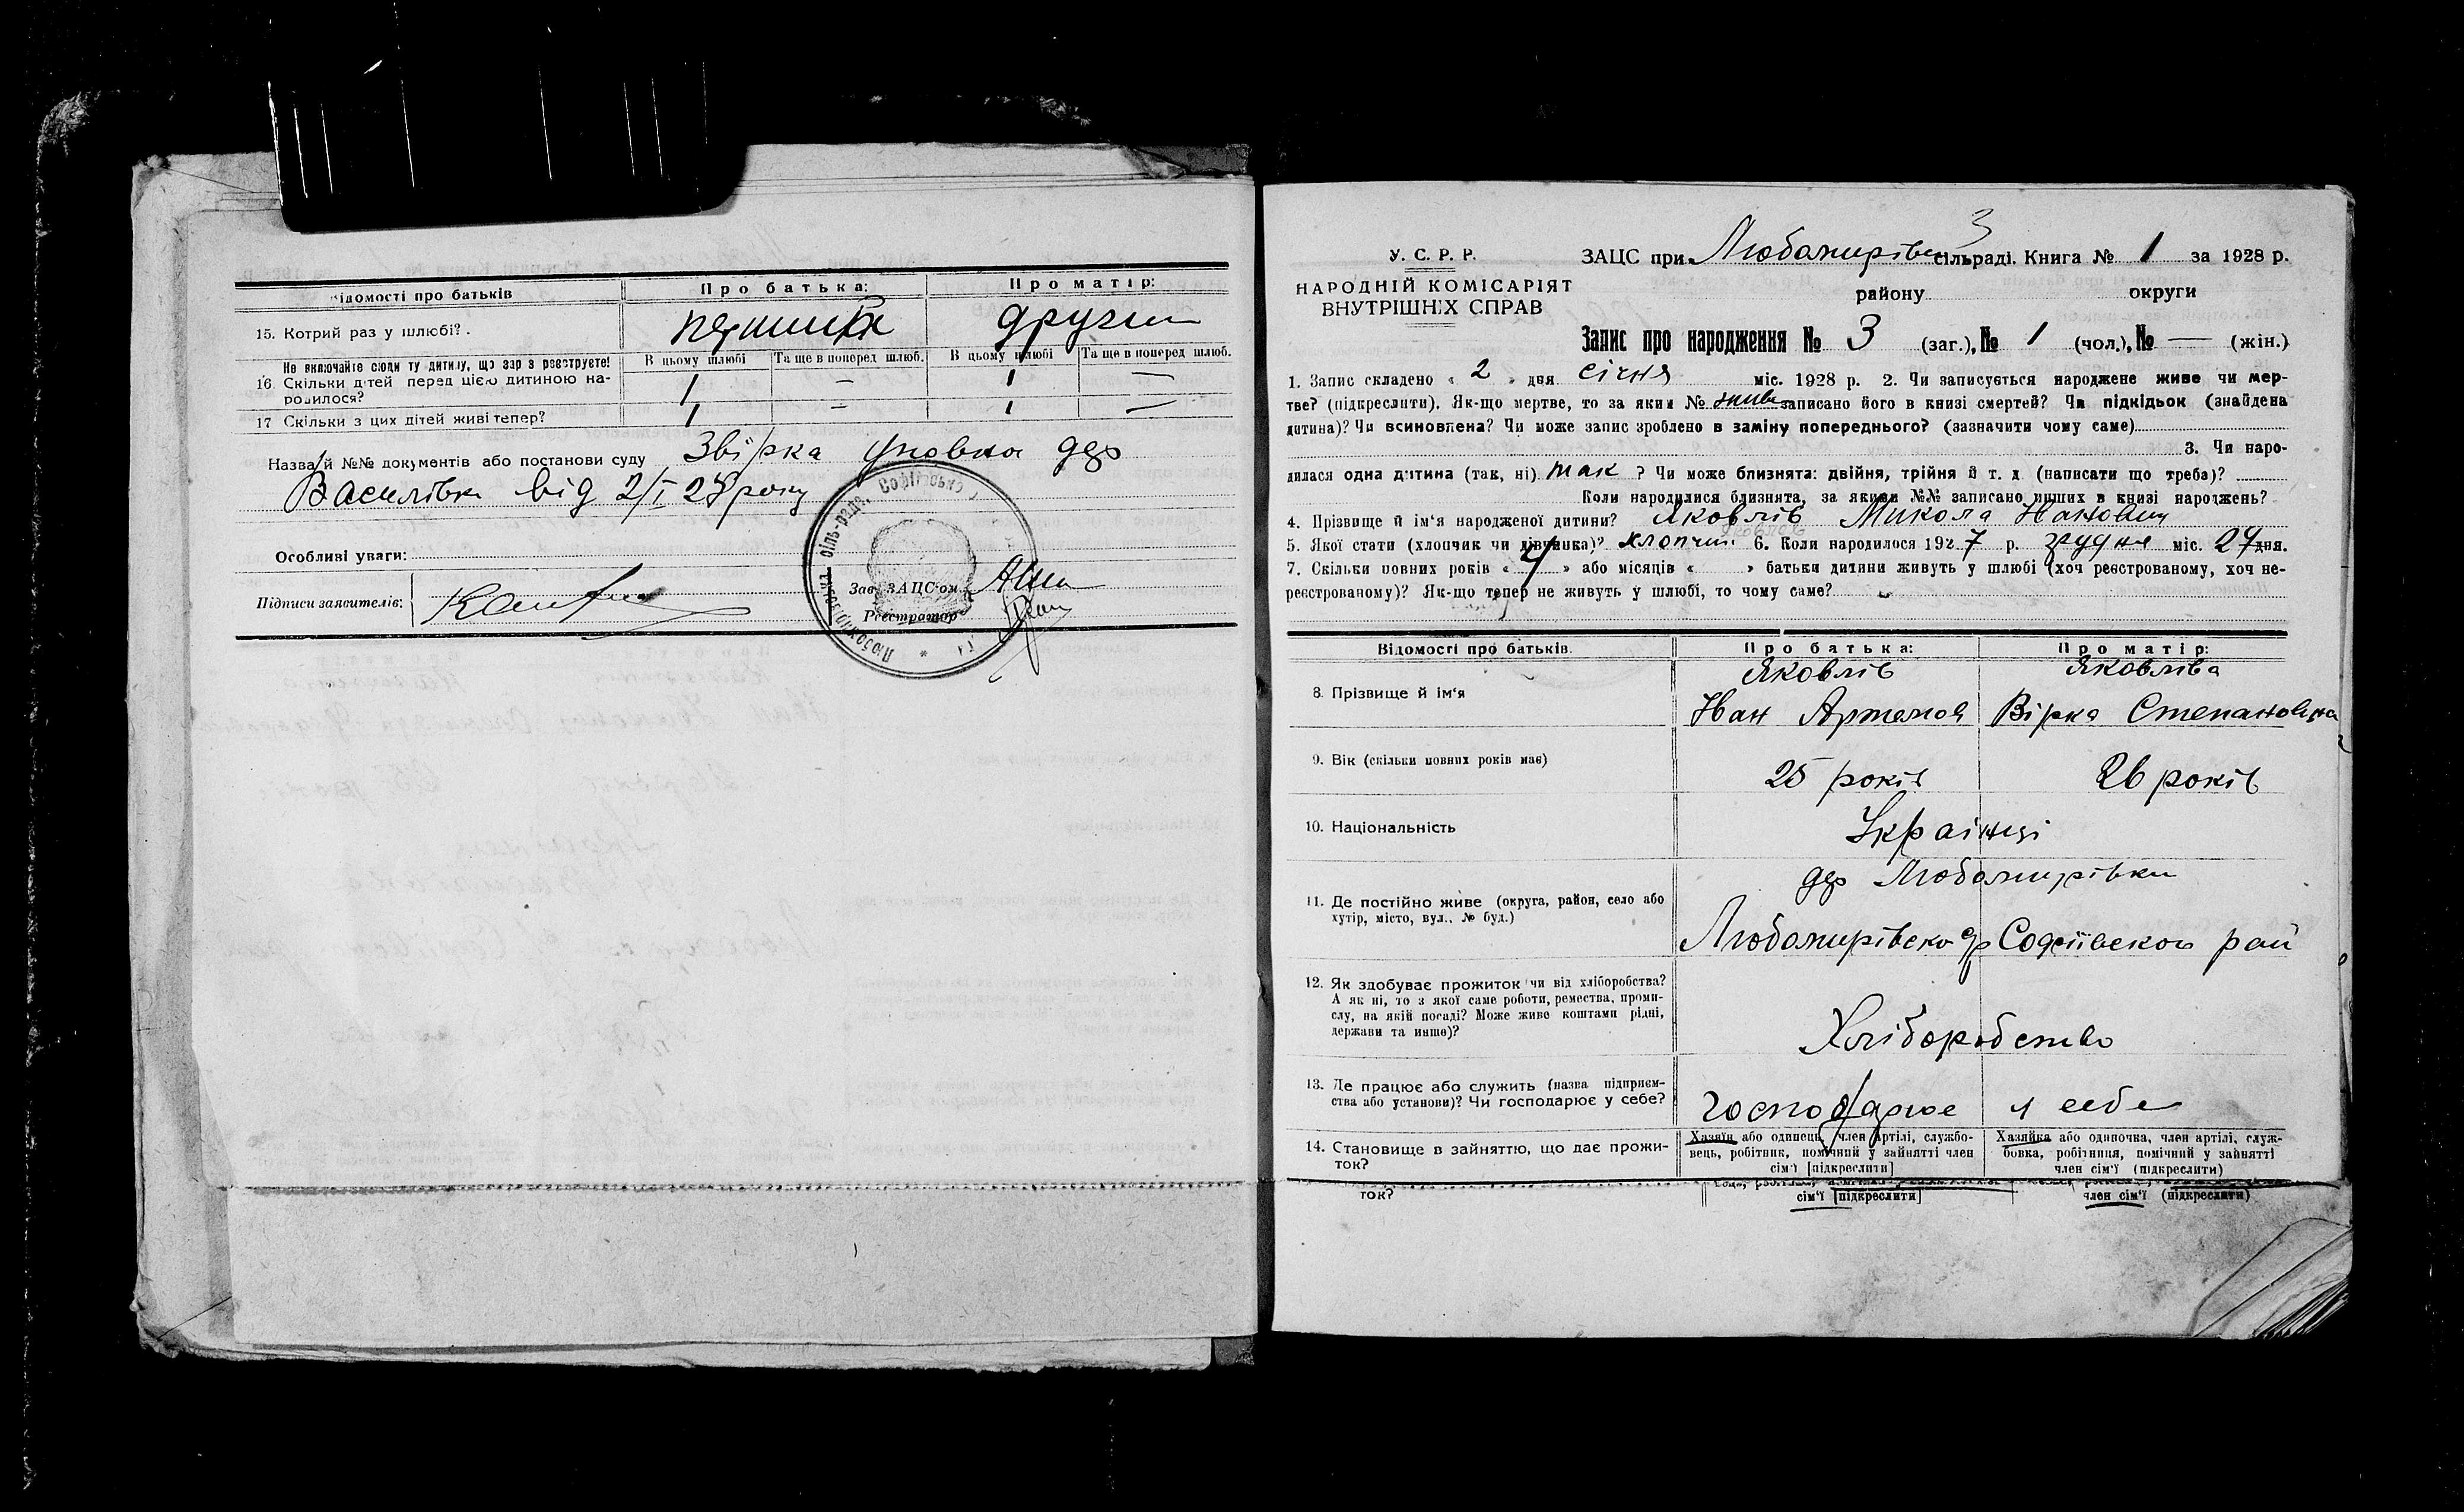 Відомості про батьків
Про батька:
Про матір:
15. Котрий раз у шлюбі?
перший
другий
Не включайте сюди ту дитину, що зараз реєструєте!
В цьому шлюбі
Та ще в поперед шлюб.
В цьому шлюбі
Та ще в поперед шлюб.
16. Скільки дітей перед цією дитиною на-
родилося?
1 — 1 —
17 Скільки з цих дітей живі тепер?
1 — 1 —
Назва й №№ документів або постанови суду Звірка умовна дер
Василівки від 2/I 28 року
Особливі уваги:
Підписи заявителів:
Зав. ЗАЦС'ом
Реєстратор
Любомирівська сіль-рада, Софіївсько
3
У. С. Р. Р.
НАРОДНІЙ КОМІСАРІЯТ
ВНУТРІШНІХ СПРАВ
ЗАЦС при Любомирівс сільраді. Книга № 1 за 1928 р.
району округи
Запис про народження № 3 (заг.), № 1 (чол.), № — (жін.)
1. Запис складено « 2 » дня січня міс. 1928 р. 2. Чи записується народжене живе чи мер-
тве? (підкреслити). Як-що мертве, то за яким № живе записано його в книзі смертей? Чи підкідьок (знайдена
дитина)? Чи всиновлена? Чи може запис зроблено в заміну попереднього? (зазначити чому саме)
3. Чи наро-
дилася одна дитина (так, ні) так ? Чи може близнята: двійня, трійня й т. д (написати що треба)?
Коли народилися близнята, за якими №№ записано инших в книзі народжень?
4. Прізвище й ім'я народженої дитини? Яковлів Микола Іванович
5. Якої стати (хлопчик чи дівчинка)? хлопчик 6. Коли народилося 1927 р. грудня міс. 24 дня.
7. Скільки повних років « 4 » або місяців « » батьки дитини живуть у шлюбі (хоч реєстрованому, хоч не-
реєстрованому)? Як-що тепер не живуть у шлюбі, то чому саме?
Відомості про батьків.
Про батька:
Про матір:
8. Прізвище й ім'я
Яковлів
Іван Артемов
Яковліва
Вірка Степановна
9. Вік (скільки повних років має)
25 років
26 років
10. Національність
Українці
11. Де постійно живе (округа, район, село або
хутір, місто, вул., № буд.)
дер Любомирівки
Любомирівско др Софіівског рай
12. Як здобуває прожиток чи від хліборобства?
А як ні, то з якої саме роботи, ремества, проми-
слу, на якій посаді? Може живе коштами рідні,
держави та инше)?
Хліборобство
13. Де працює або служить (назва підприєм-
ства або установи)? Чи господарює у себе?
господарює у себе
14. Становище в зайняттю, що дає прожи-
ток?
Хазяїн або одинець, член артілі, службо-
вець, робітник, помічний у зайнятті член
сім'ї [підкреслити]
Хазяйка або одиночка, член артілі, служ-
бовка, робітниця, помічний у зайнятті
член сім'ї (підкреслити)
ток?
сім'ї [підкреслити]
член сім'ї (підкреслити)